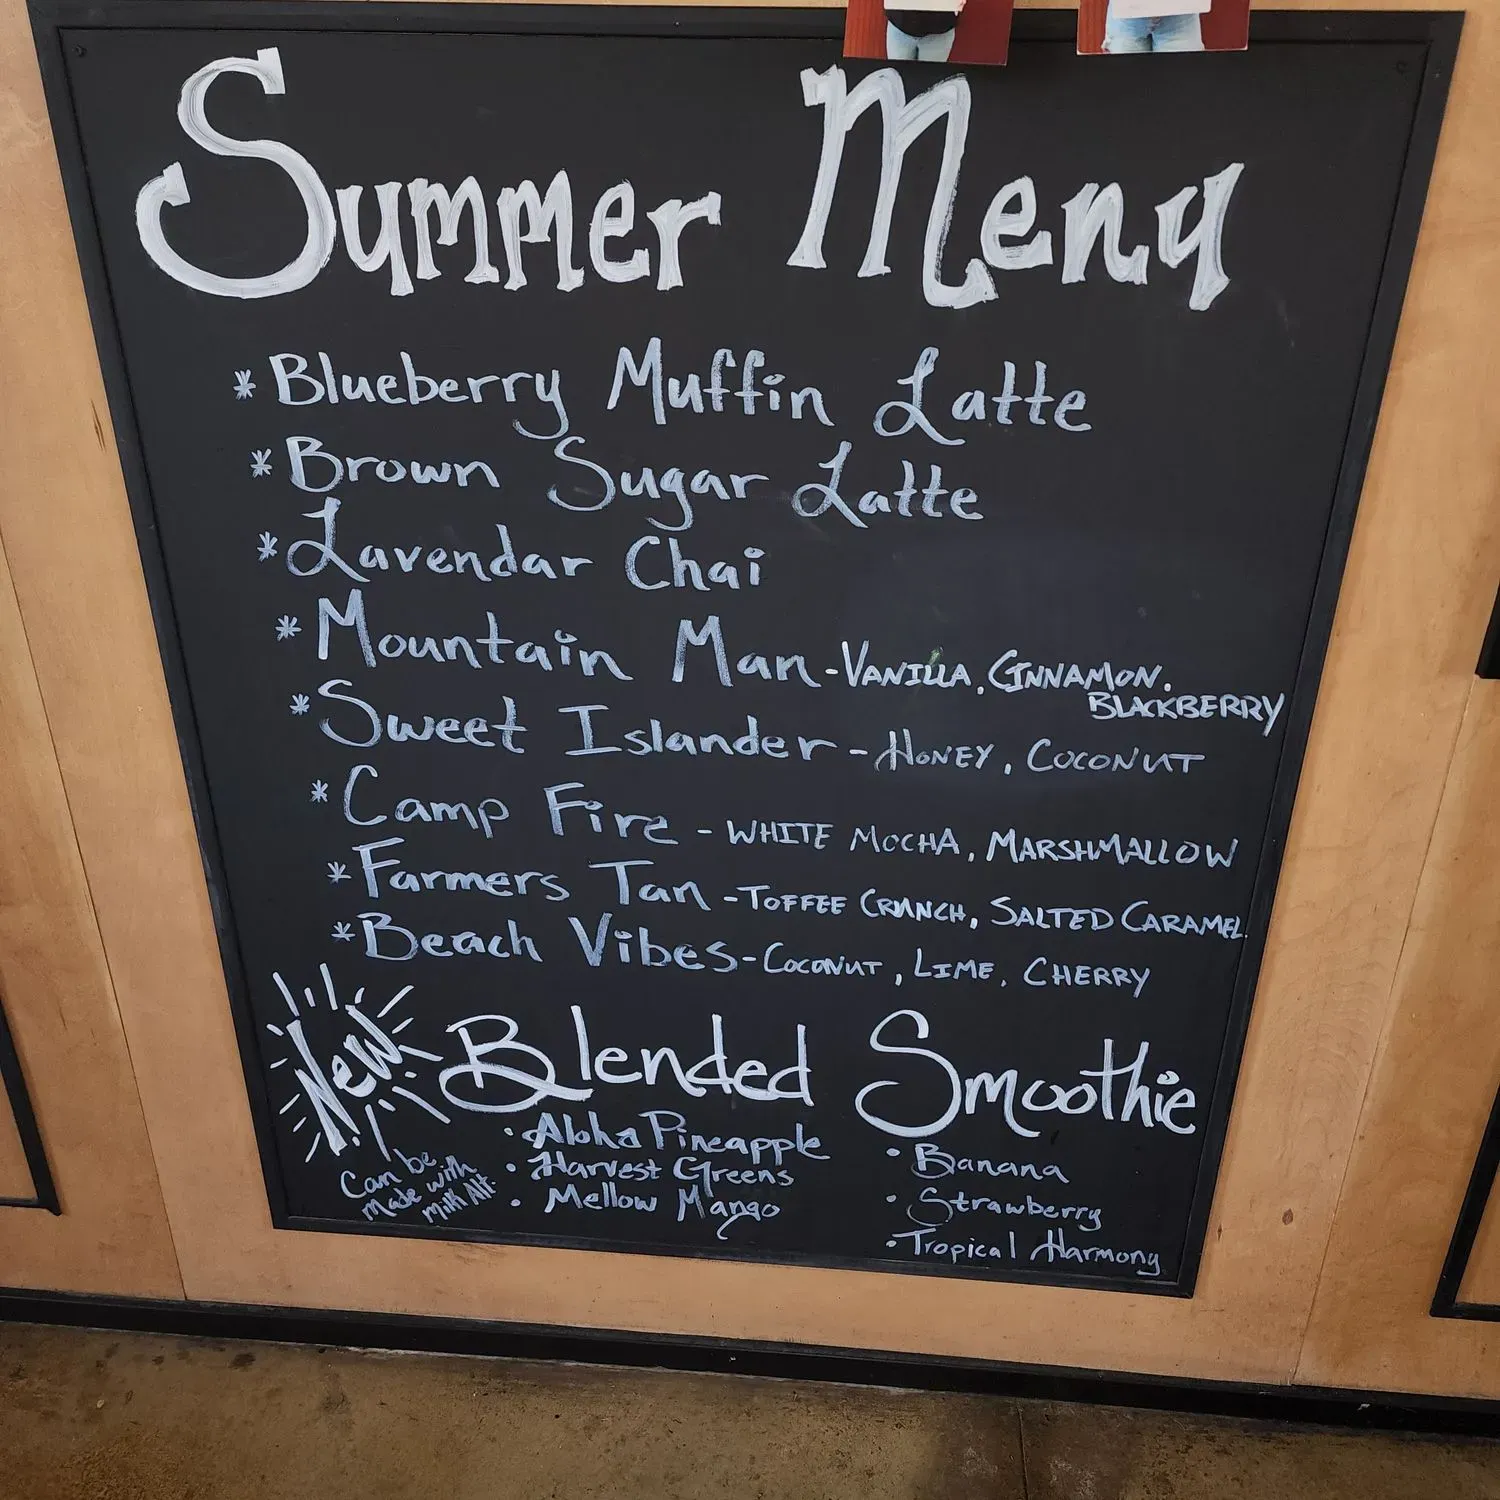 Summer Menu
* Blueberry Muffin Latte
* Brown Sugar Latte
* Lavendar Chai
* Mountain Man - VANILLA, CINNAMON,
BLACKBERRY
* Sweet Islander - HONEY, COCONUT
* Camp Fire - WHITE MOCHA, MARSHMALLOW
* Farmers Tan - TOFFEE CRUNCH, SALTED CARAMEL
* Beach Vibes - COCONUT, LIME, CHERRY
New Blended Smoothie
• Aloha Pineapple
• Harvest Greens
• Mellow Mango
• Banana
• Strawberry
• Tropical Harmony
Can be
made with
Milk Alt.